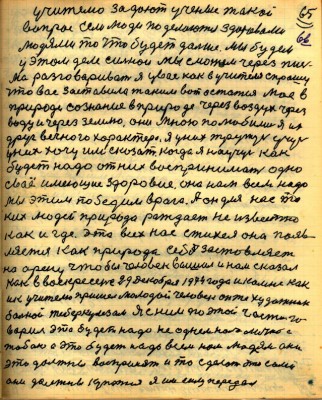 65
66
учителю задают ученые такой
вопрос если люди поделаются здоровыми
людями то что будет дальше. мы будем
у этом деле сильные мы сможем через
ма разговариват я у вас как в учителя спрошу
что вас заставило таким вот остатся мое в
природе сознание в природе через воздух через
воду и через землю, они мною полюбились я им
друг вечного характера. я у них учус
у них хочу им сказат когда я научус как
будет надо от них воспринимат одно
свой имеющие здоровие. она нам всем надо
мы этим победим врага. я один нас то
ких людей природа рождает не известно
как и где. это всех нас стихия она появ
ляется как природа себе заставляет
на арену чтобы человек вышел и нам сказал
как в воскресение 29 декабря 1974 года и
ик учителю пришел молодой человек он художник
болной туберкулезом я с ним по этой части го
ворил это будет надо не одному
тобою а это будет надо всем нам людям они
это должны воспринят и то сделат что сами
они должны купатся я им силу передал